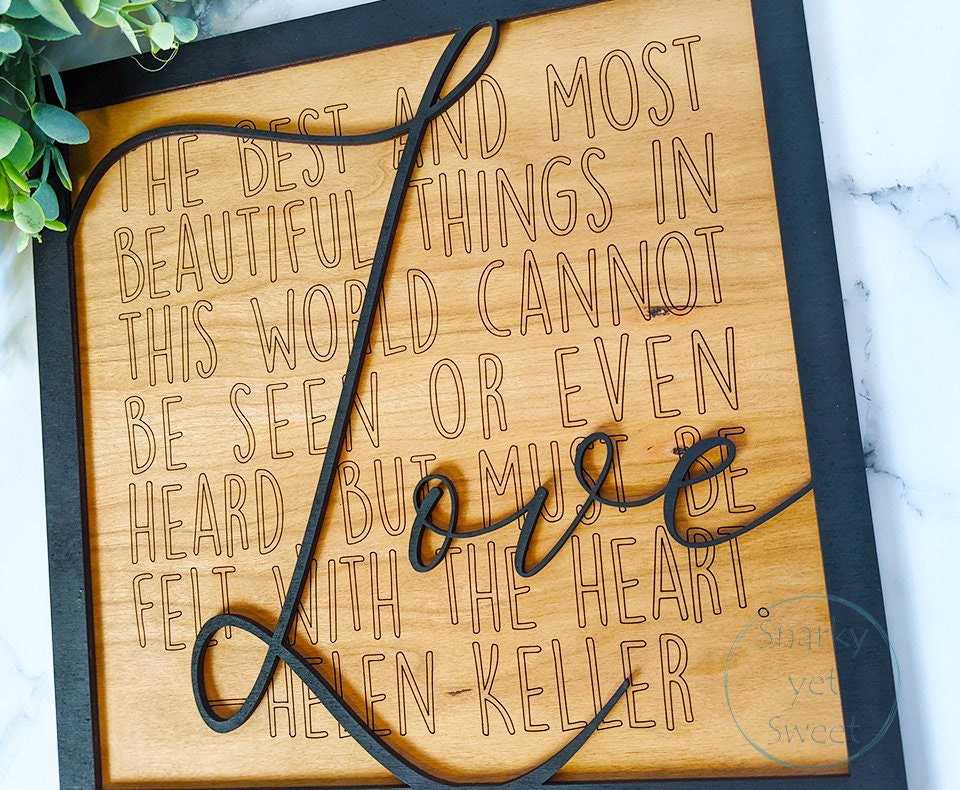 THE BEST AND MOST
BEAUTIFUL THINGS IN
THIS WORLD CANNOT
BE SEEN OR EVEN
HEARD BUT MUST BE
FELT WITH THE HEART
—HELEN KELLER
Love
Snarky
yet
Sweet